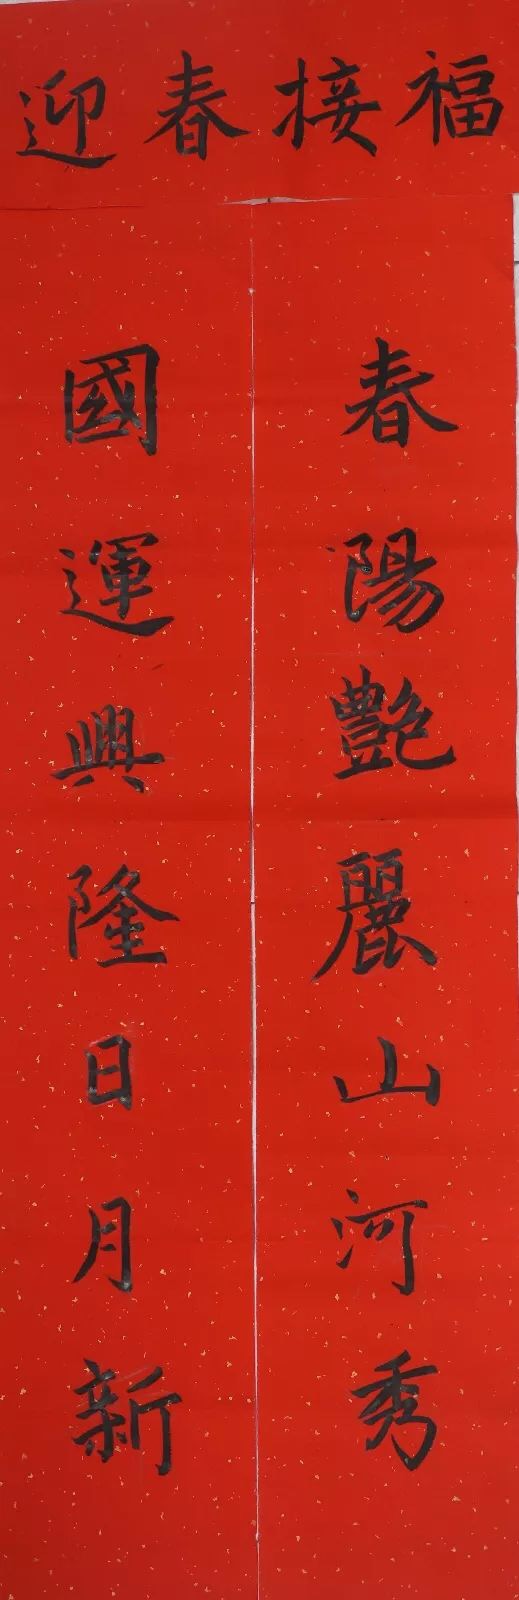 迎春接福
春陽艷麗山河秀
國運興隆日月新